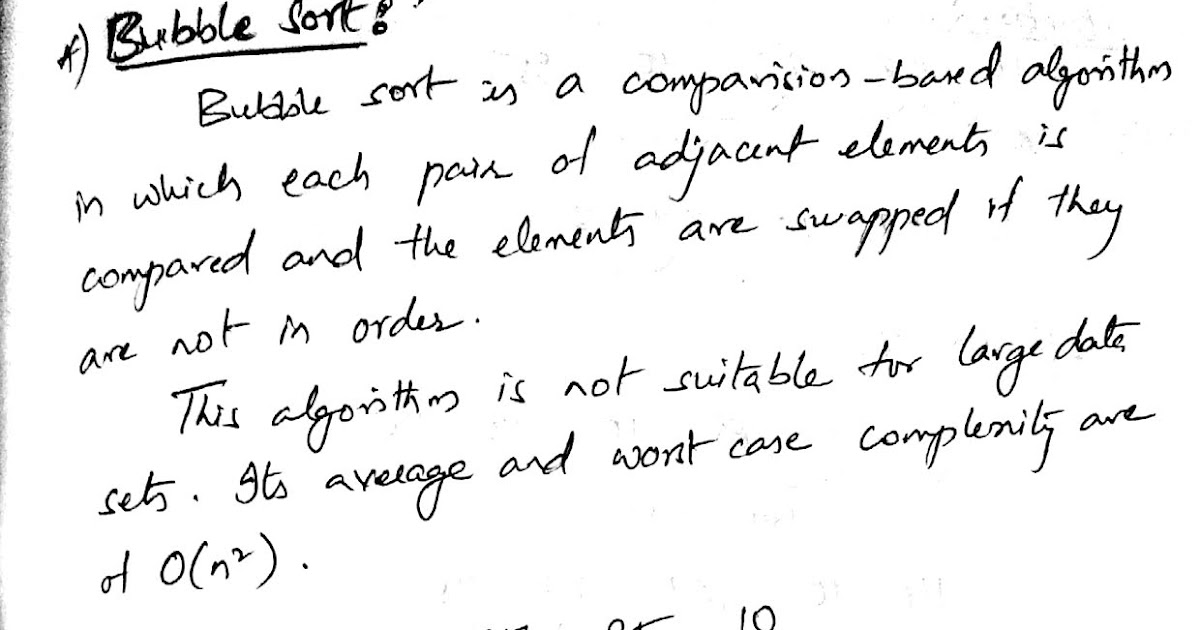 *) Bubble Sort:
Bubble sort is a comparision-based algorithm
in which each pair of adjacent elements is
compared and the elements are swapped if they
are not in order.
This algorithm is not suitable for large data
sets. Its average and worst case complexity are
of O(n²).
10